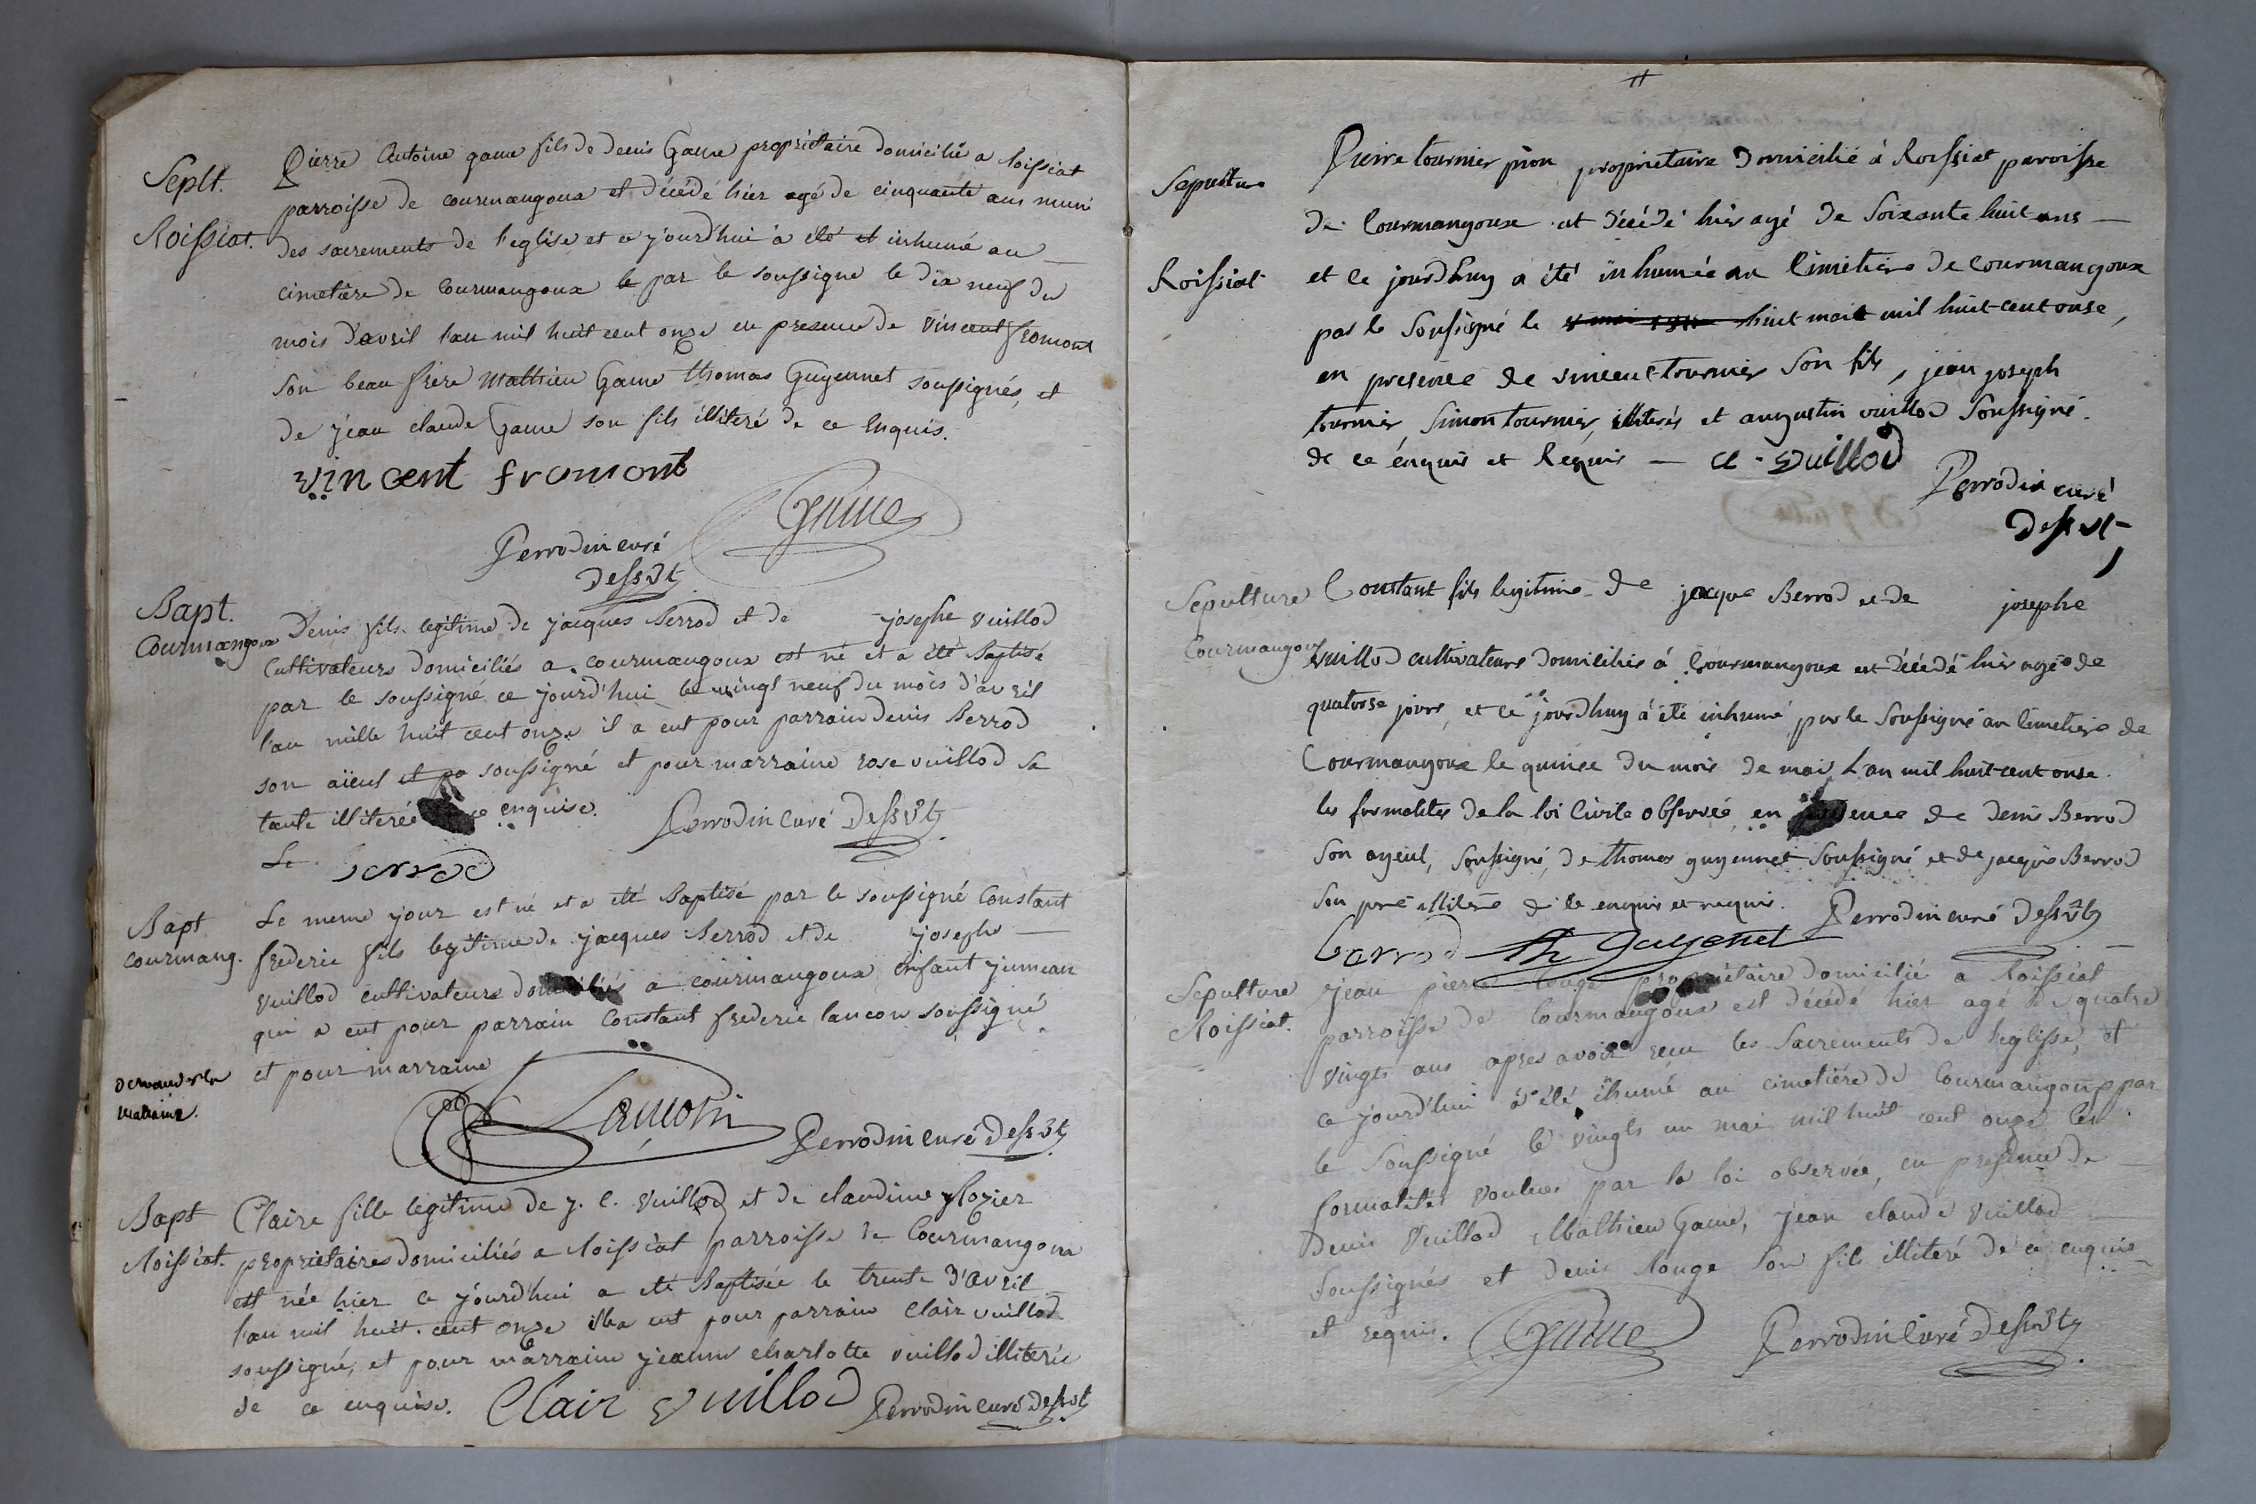 Seplt.
Roissiat.
Pierre Antoine game fils de denis Game propriétaire domicilié a Roissiat
parroisse de courmangoux et décédé hier agé de cinquante ans muni
des sacrements de l'eglise et ce jourd'hui a été et inhumé au
cimetière de Courmangoux le par le soussigné le dix neuf du
mois d'avril l'an mil huit cent onze en presence de vincent fromont
son beau frère Mathieu Game thomas Guyennet soussignés, et
de jean claude Game son fils illiteré de ce Enquis.
vincent fromont
Game
Perrodin curé
dess̃vt
Bapt.
Courmangoux
Denis fils legitime de jacques Berrod et de josephe vuillod
Cultivateurs domiciliés a courmangoux est né et a été Baptisé
par le soussigné ce jourd'hui le vingt neuf du mois d'avril
l'an mille huit cent onze il a eut pour parrain denis Berrod
son aïeul et pa soussigné et pour marraine rose vuillod sa
tante illiterée ce enquise. Perrodin Curé dess̃vt
De berrod
Bapt
courmang.
Le meme jour est né et a été Baptisé par le soussigné Constant
frederic fils legitime de jacques Berrod et de josephe
vuillod cultivateurs domiciliés a courmangoux enfant jumeau
qui a eut pour parrain Constant frederic lancon soussigné
et pour marraine
demander la
maraine.
Lancon
Perrodin curé dess̃vt
Bapt
Roissiat.
Claire fille legitime de j. C. Vuillod et de claudine
propriétaires domiciliés a Roissiat parroisse de Courmangoux
est née hier ce jourd'hui a été Baptisée le trente d'avril
l'an mil huit cent onze elle a eut pour parrain Clair vuillod
soussigné, et pour marraine jeanne charlotte vuillod illiterée
de ce enquise. Clair vuillod Perrodin curé dess̃vt
11
Sepulture
Roissiat
Pierre tournier pion propriétaire domicilié à Roissiat paroisse
de Courmangoux est décédé hier agé de Soixante huit ans
et ce jourdhuy a été inhumée au Cimetiere de Courmangoux
par le Soussigné le huit mai mil huit-cent onse,
en presence de vincent tournier son fils, jean joseph
tournier, Simon tournier, illiterés et augustin vuillod Soussigné.
de ce enquis et Requis — a. vuillod
Perrodin curé
dess̃vt
Sepulture
Courmangoux
Constant fils legitime de jacque Berrod et de josephe
vuillod cultivateurs domiciliés à Courmangoux est décédé hier agé de
quatorse jours, et ce jourdhuy a été inhumé par le Soussigné au Cimetiere de
Courmangoux le quinse du mois de mai L'an mil huit-cent onse.
les formalites de la loi Civile observée, en presence de denis Berrod
son ayeul, soussigné, de thomas guyennet soussigné et de jacque Berrod
son pere illiteré de ce enquis et requis. Perrodin curé dess̃vt
berrod Th Guyenet
Sepulture
Roissiat.
jean pierre Rouge propriétaire domicilié a Roissiat
parroisse de Courmangoux est décédé hier agé de quatre
vingts ans apres avoir recu les Sacrements de l'eglise, et
ce jourd'hui a été ihumé au cimetière de Courmangoux par
le Soussigné le vingts un mai mil huit cent onze les
formalités voulues par la loi observée, en presence de
denis Vuillod Mathieu Game, jean claude vuillod
Soussignés et denis Rouge son fils illiteré de ce enquis
et requis. Game Perrodin Curé dess̃vt